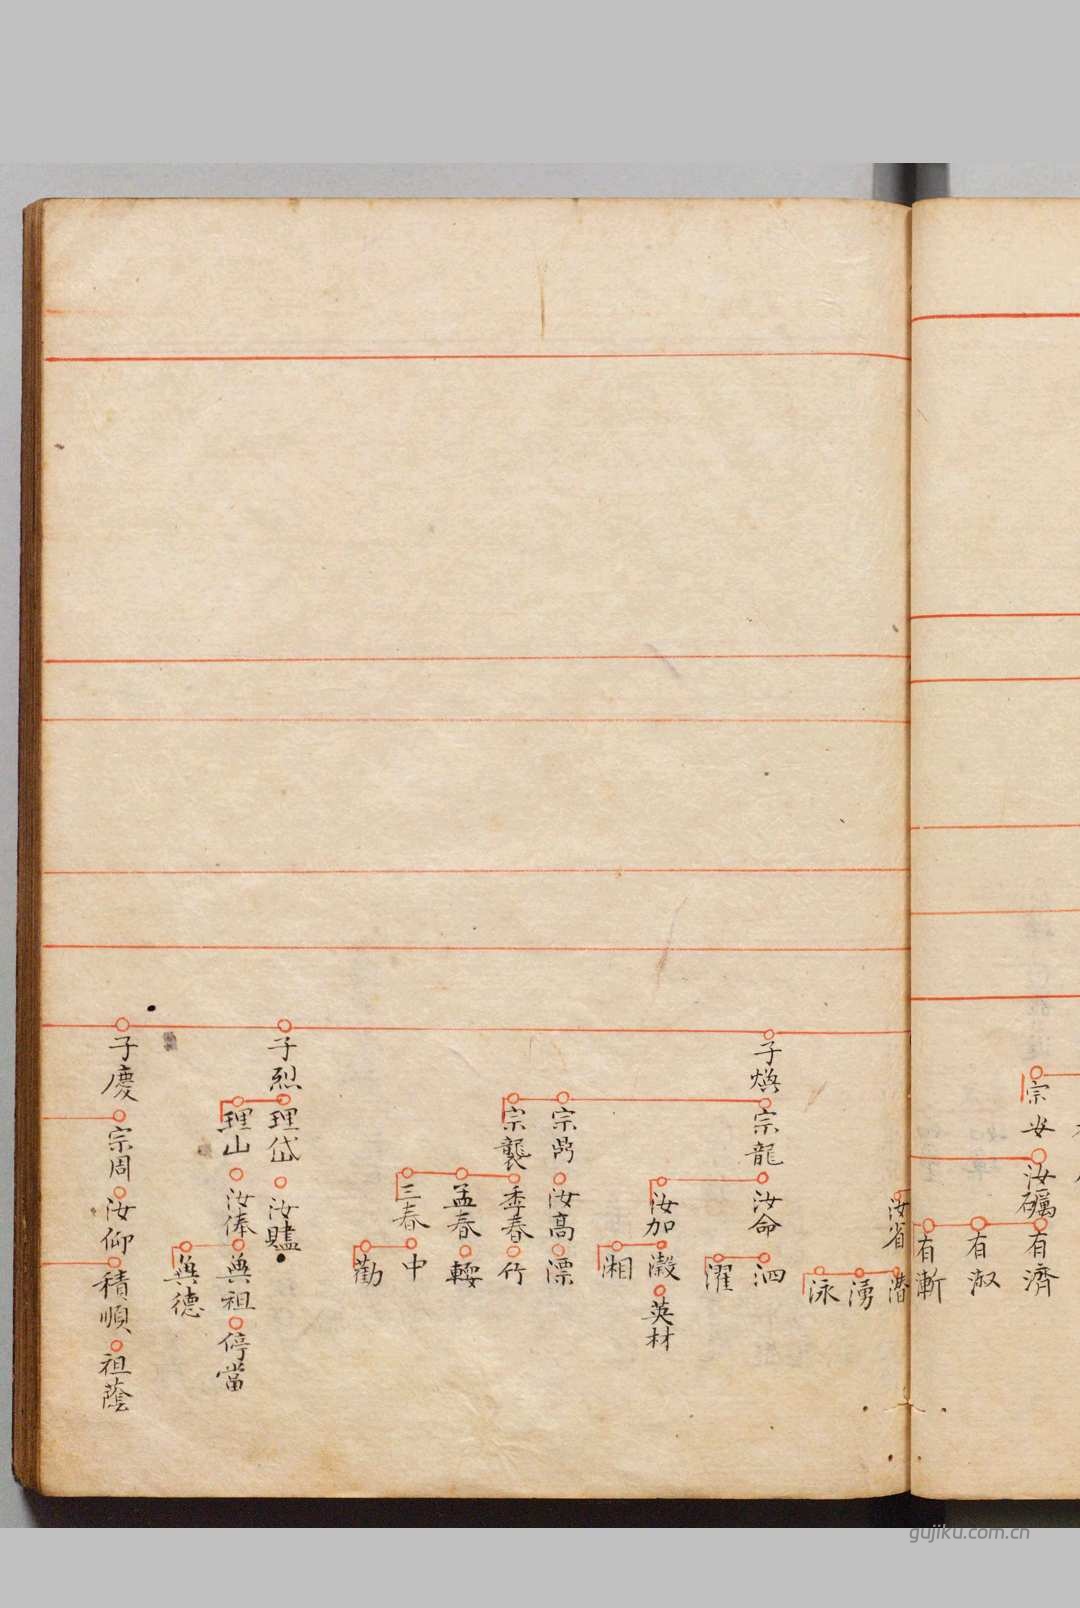 宗安
汝礪
有濟
有淑
有漸
汝省
潜
湧
泳
子煥
宗龍
汝命
泗
濯
汝加
瀔
英材
湘
宗鼎
汝高
漂
宗襲
季春
竹
孟春
輕
三春
中
勸
子烈
理岱
汝賮
理山
汝俸
興祖
停當
興德
子慶
宗周
汝仰
積順
祖蔭
gujiku.com.cn